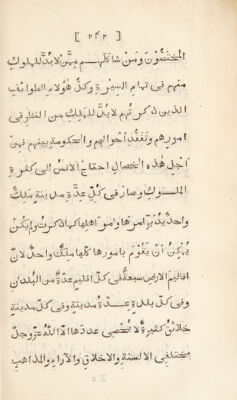 [ ٢٤٢ ]
المختصّون ومن شاكلهم ممّن لا بدّ للملوك
منهم فى تمام السيرة وكلّ هؤلاء الطوائف
الذين ذكرتهم لا بدّ للملك من النظر فى
امورهم وتفقّد احوالهم والحكومة بينهم فمن
اجل هذه الخصال احتاج الانس الى كثرة
الملوك وصار فى كلّ عدّة مدينة ملك
واحد يدبّر امرها وامر اهلها كما ذكرت ولم يكن
يمكن ان يقوم بامورها كلّها ملك واحد لانّ
اقاليم الارض سبعة فى كلّ اقليم عدّة من البلدان
وفى كلّ بلدة عدّة مدينة وفى كلّ مدينة
خلائق كثيرة لا يحصى عددها الّا اللّه عزّ وجلّ
مختلفى الالسنة والاخلاق والآراء والمذاهب